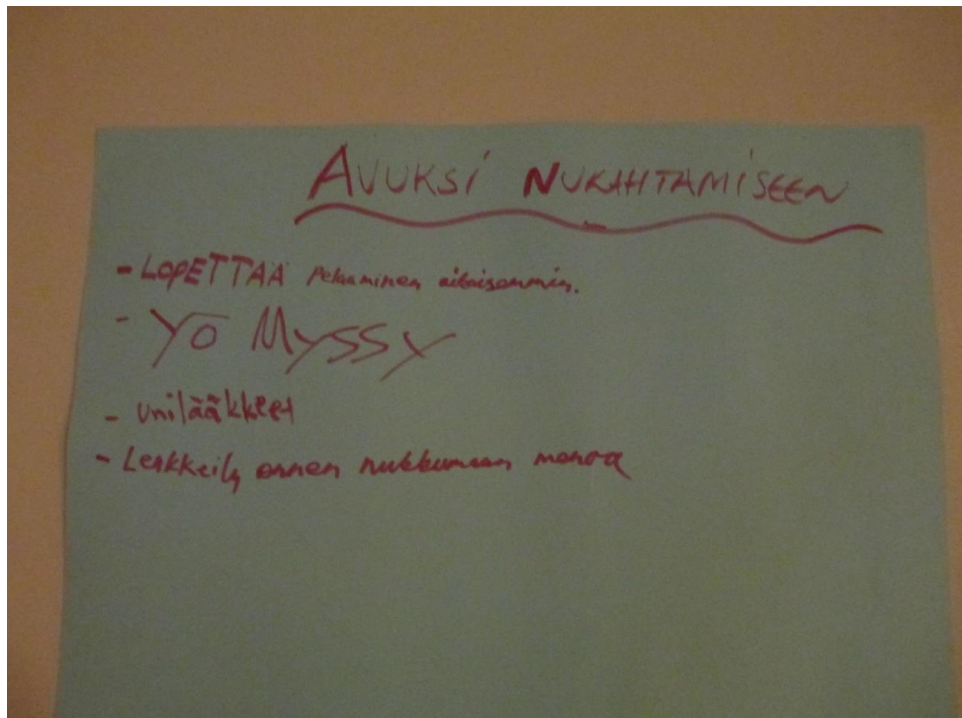 AVUKSI NUKAHTAMISEEN
- LOPETTAA Pelaaminen aikaisemmin.
- YÖ MYSSY
- Unilääkkeet
- Lenkkeily ennen nukkumaan menoa